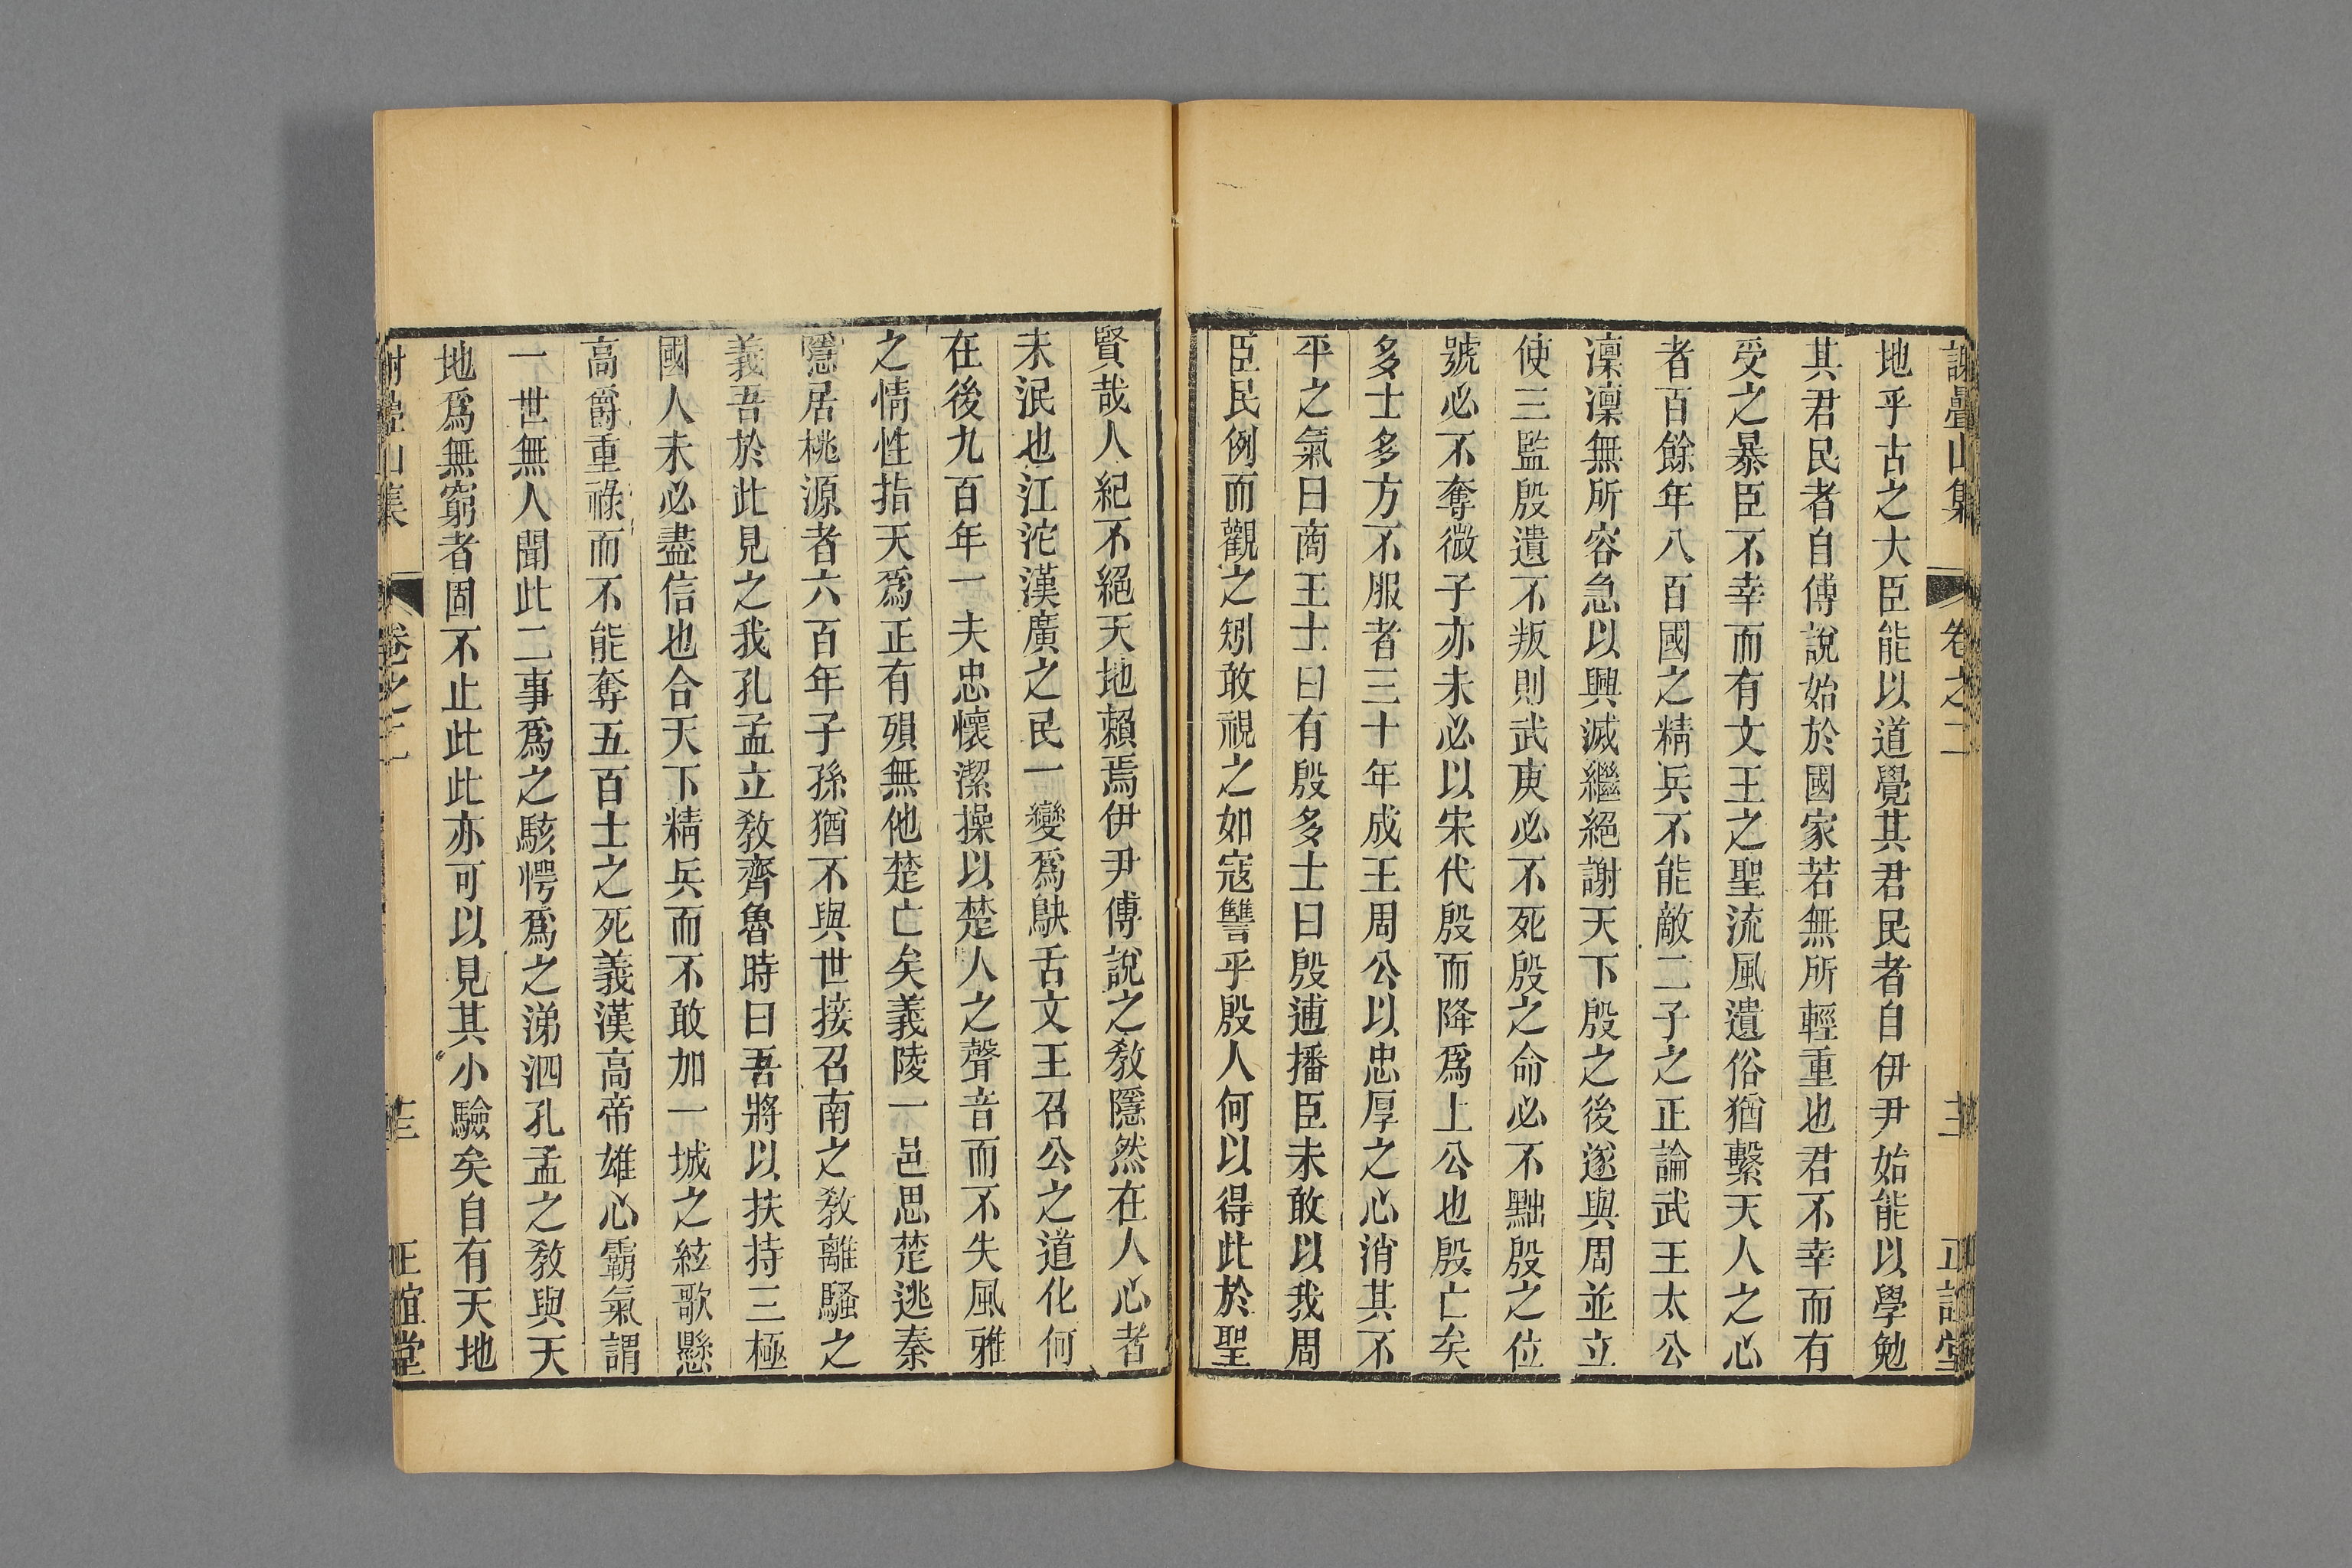 謝疊山集 卷之二 正誼堂
地乎古之大臣能以道覺其君民者自伊尹始能以學勉
其君民者自傅說始於國家若無所輕重也君不幸而有
受之暴臣不幸而有文王之聖流風遺俗猶繫天人之心
者百餘年八百國之精兵不能敵二子之正論武王太公
凜凜無所容急以興滅繼絕謝天下殷之後遂與周並立
使三監殷遺不叛則武庚必不死殷之命必不黜殷之位
號必不奪微子亦未必以宋代殷而降爲上公也殷亡矣
多士多方不服者三十年成王周公以忠厚之心消其不
平之氣曰商王士曰有殷多士曰殷逋播臣未敢以我周
臣民例而觀之矧敢視之如寇讐乎殷人何以得此於聖
賢哉人紀不絕天地賴焉伊尹傅說之敎隱然在人心者
未泯也江沱漢廣之民一變爲鴃舌文王召公之道化何
在後九百年一夫忠懷潔操以楚人之聲音而不失風雅
之情性指天爲正有殞無他楚亡矣義陵一邑思楚逃秦
隱居桃源者六百年子孫猶不與世接召南之敎離騷之
義吾於此見之我孔孟立敎齊魯時曰吾將以扶持三極
國人未必盡信也合天下精兵而不敢加一城之絃歌懸
高爵重祿而不能奪五百士之死義漢高帝雄心霸氣謂
一世無人聞此二事爲之駭愕爲之涕泗孔孟之敎與天
地爲無窮者固不止此此亦可以見其小驗矣自有天地
謝疊山集 卷之二 正誼堂